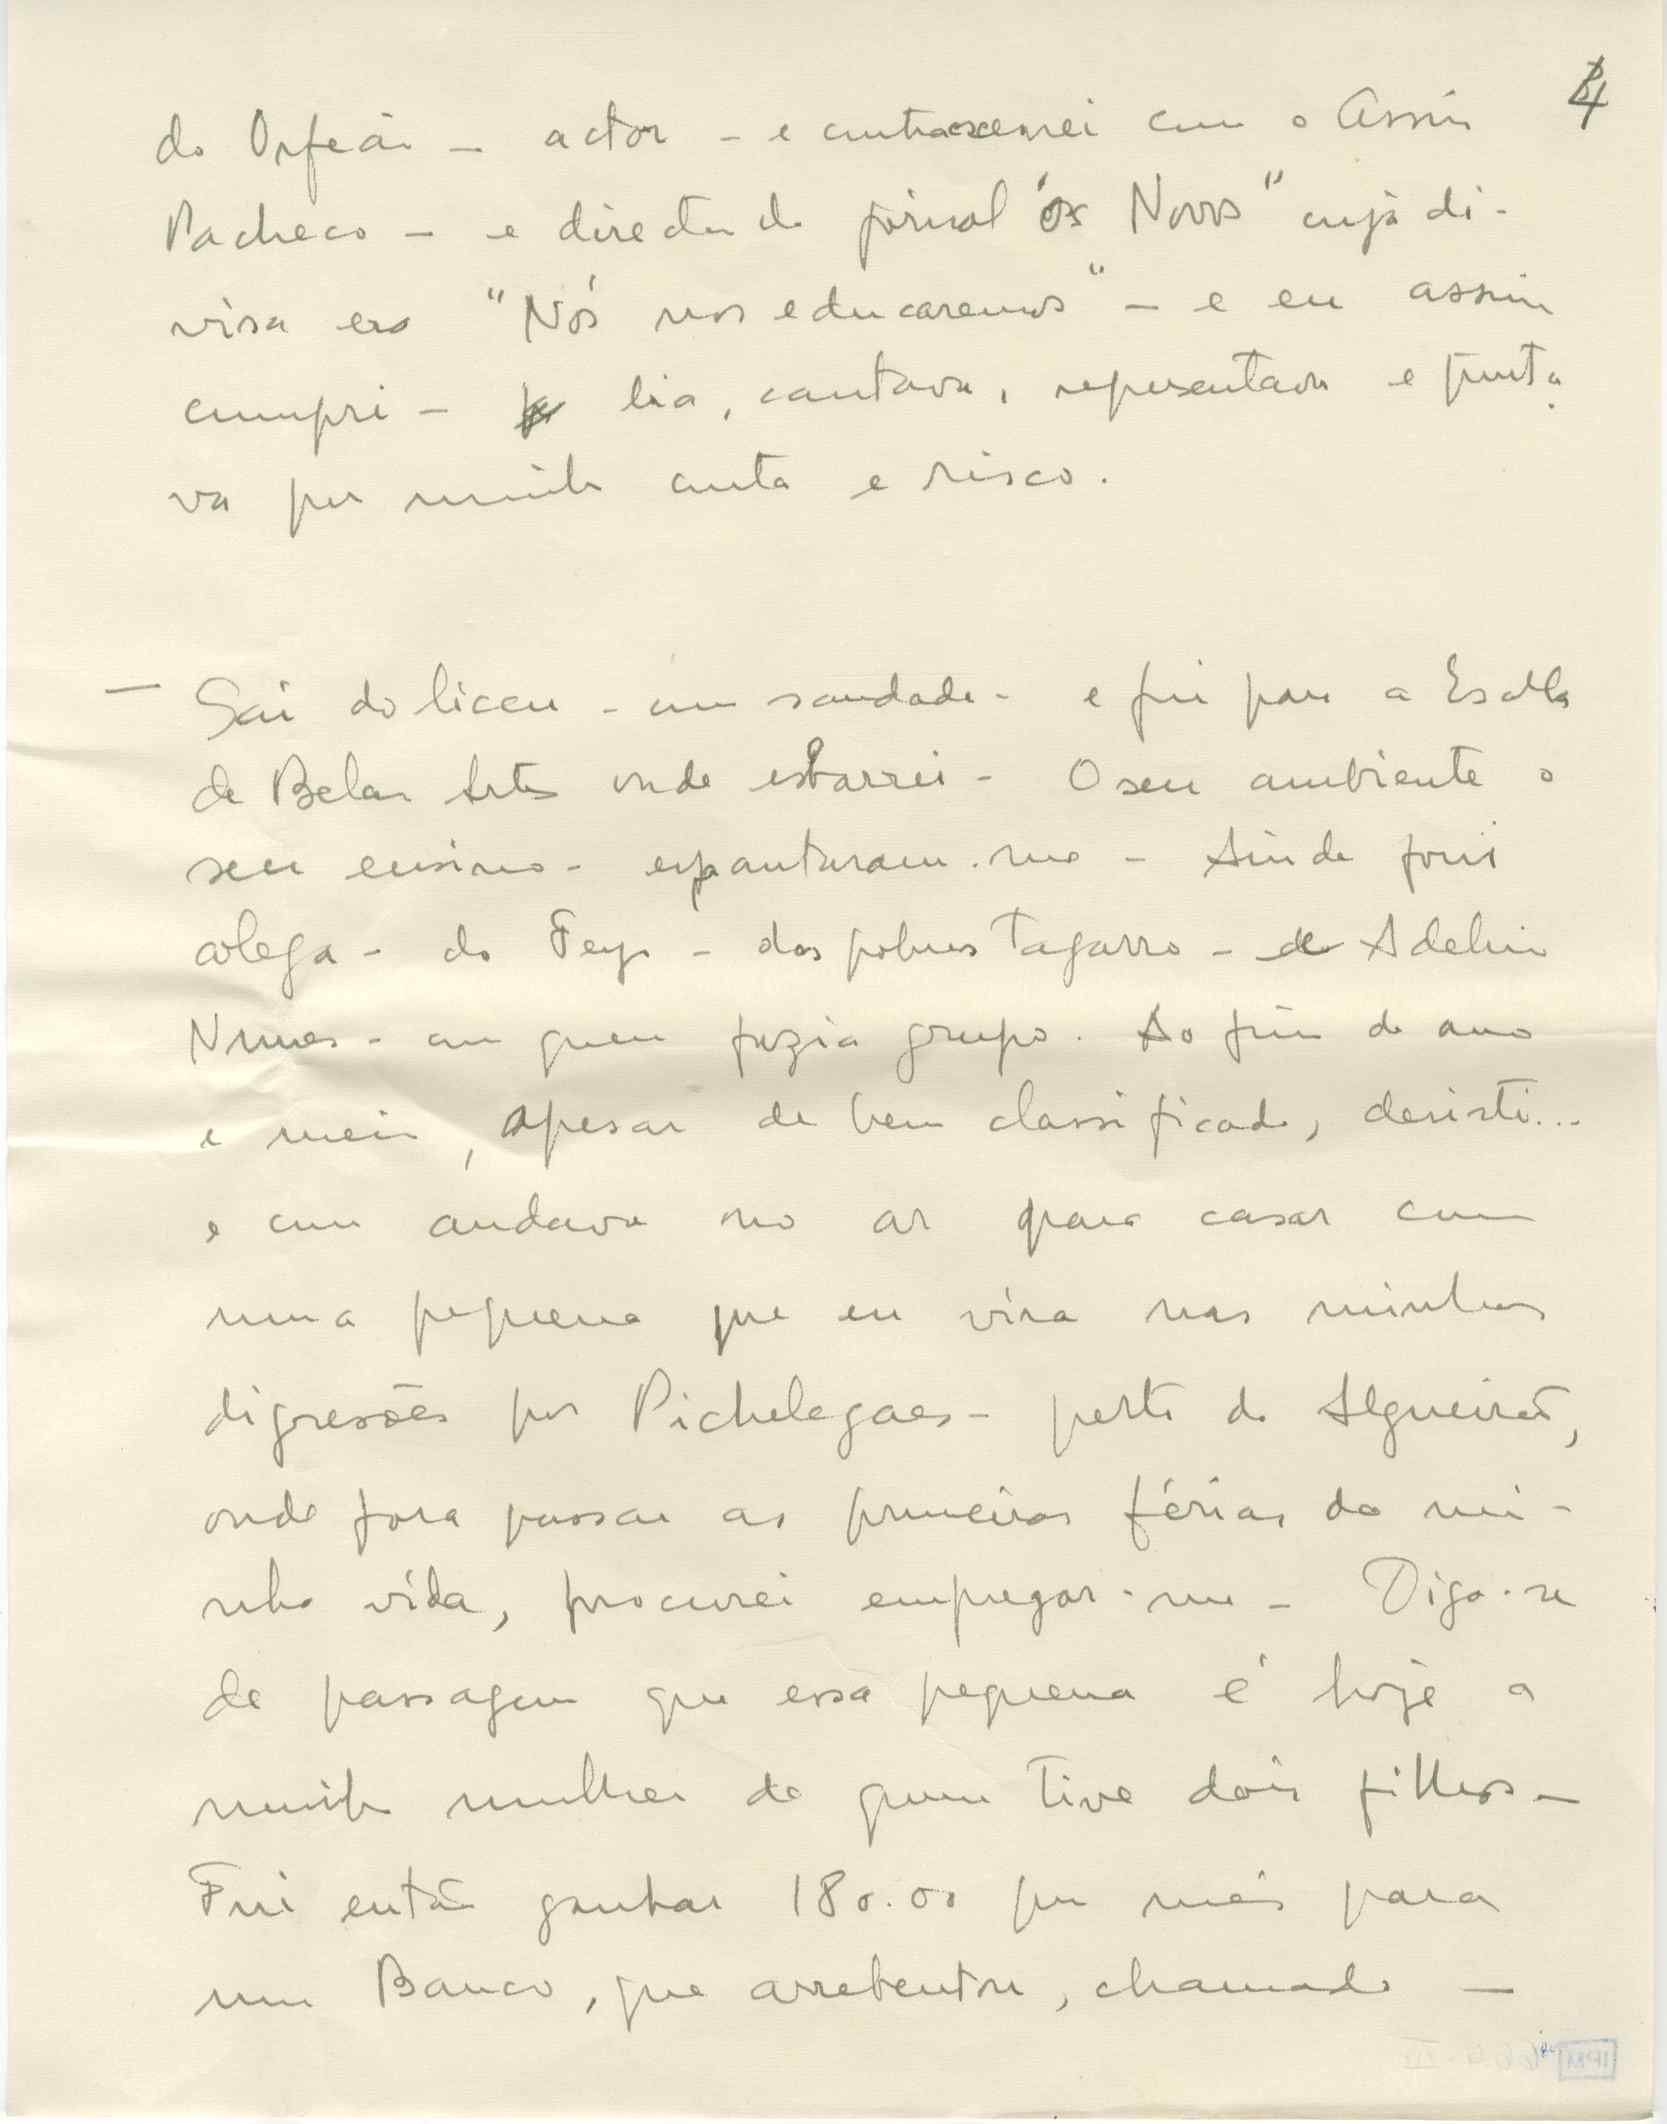 4
do Orfeão – actor – e contracenei com o Assis
Pacheco – e director do jornal "Os Novos" cuja di-
visa era "Nós nos educaremos" – e eu assim
cumpri – lia, cantava, representava e pinta
va por minha conta e risco.
– Saí do liceu – com saudade – e fui para a Escola
de Belas Artes onde esbarrei – O seu ambiente o
seu ensino – espantaram-me – Ainda foi
colega – do – dos pobres Tagarro – de Adelino
Nunes – com quem fazia grupo. Ao fim de ano
e meio, apesar de bem classificado, desisti...
e com andava no ar para casar com
uma pequena que eu vira nas minhas
digresões por Pichelegaes – perto do Algueirão,
onde fora passar as primeiras férias da mi-
nha vida, procurei empregar-me – Diga-se
de passagem que essa pequena é hoje a
minha mulher de quem tive dois filhos –
Fui então ganhar 180.00 por mês para
um Banco, que arrebentou, chamado –
IPM